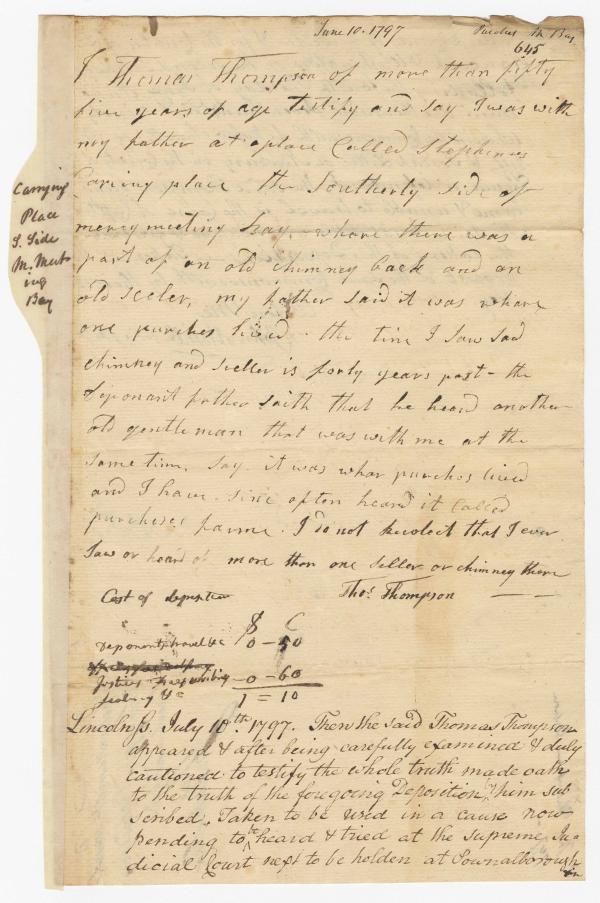 June 10. 1797
645
I Thomas Thompson of more than fifty
five years of age testify and say I was with
my father at a place Called Stephenses
Carring place the Southerly side of
merrymeeting bay, whare there was a
part of an old chimney back and an
old seeler, my father said it was whare
one purches lived. the time I saw sad
chimney and seller is forty years past - the
Deponant father saith that he heard another
old gentleman that was with me at the
same time, say it was whar purches lived
and I have sinc often heard it Called
purcheses farme. I do not Recolect that I ever
Saw or heard of more than one Seller or chimney there
Thos. Thompson
Carrying
Place
S. Side
M. Meet
ing
Bay
Cost of deposition
$ C
Deponents travel &c 0 - 50
Justices
0 - 60
sealing &c 1 = 10
Lincoln ss. July 10th. 1797. Then the said Thomas Thompson
appeared & after being carefully examined & duly
cautioned to testify the whole truth made oath
to the truth of the foregoing Deposition by him sub
scribed. Taken to be used in a cause now
pending to be heard & tried at the Supreme Ju-
dicial Court next to be holden at Pownalborough
in